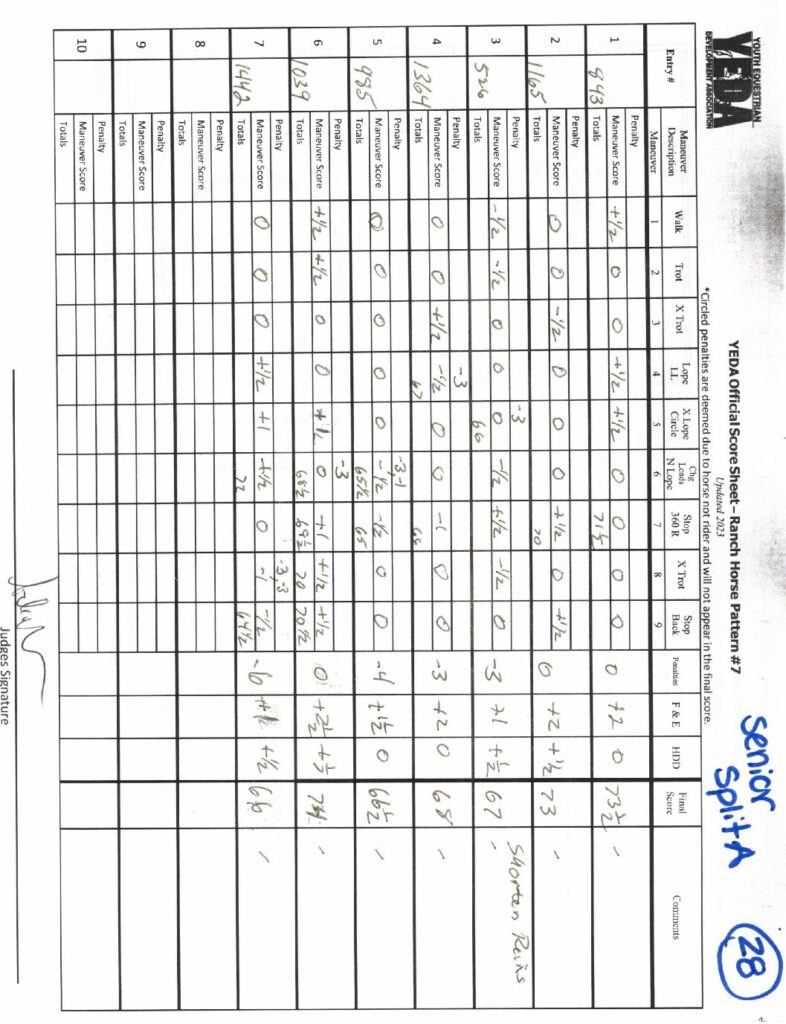 YOUTH EQUESTRIAN
YEDA
DEVELOPMENT ASSOCIATION
YEDA Official Score Sheet – Ranch Horse Pattern #7
Updated 2023
*Circled penalties are deemed due to horse not rider and will not appear in the final score.
Senior
Split A
28
Entry # Maneuver Description Walk Trot X Trot Lope LL X Lope Circle Chg Leads N Lope Stop 360 R X Trot Stop Back Penalties F & E HDD Final Score Comments
Maneuver 1 2 3 4 5 6 7 8 9
1 943 Penalty
Maneuver Score +1/2 0 0 +1/2 +1/2 0 0 0 0 0 +2 0 73 1/2
Totals 71 1/2
2 1165 Penalty
Maneuver Score 0 0 -1/2 0 0 0 +1/2 0 +1/2 0 +2 +1/2 73
Totals 70
3 526 Penalty -3
Maneuver Score -1/2 -1/2 0 0 0 -1/2 +1/2 -1/2 0 -3 +1 +1/2 67 Shorten Reins
Totals 66
4 1364 Penalty -3
Maneuver Score 0 0 +1/2 -1/2 0 0 -1 0 0 -3 +2 0 68
Totals 67
5 985 Penalty -3,-1
Maneuver Score 0 0 0 0 0 -1/2 -1/2 0 0 -4 +1 1/2 0 66 1/2
Totals 65 1/2 65
6 1039 Penalty -3
Maneuver Score +1/2 +1/2 0 0 +1/2 0 +1 +1/2 +1/2 0 +2 1/2
Totals 68 1/2 69 1/2 70 70 1/2
7 1442 Penalty -3,-3
Maneuver Score 0 0 0 +1/2 +1 +1/2 0 -1 -1/2 -6 +1/2 66
Totals 72 64 1/2
8 Penalty
Maneuver Score
Totals
9 Penalty
Maneuver Score
Totals
10 Penalty
Maneuver Score
Totals
Judges Signature